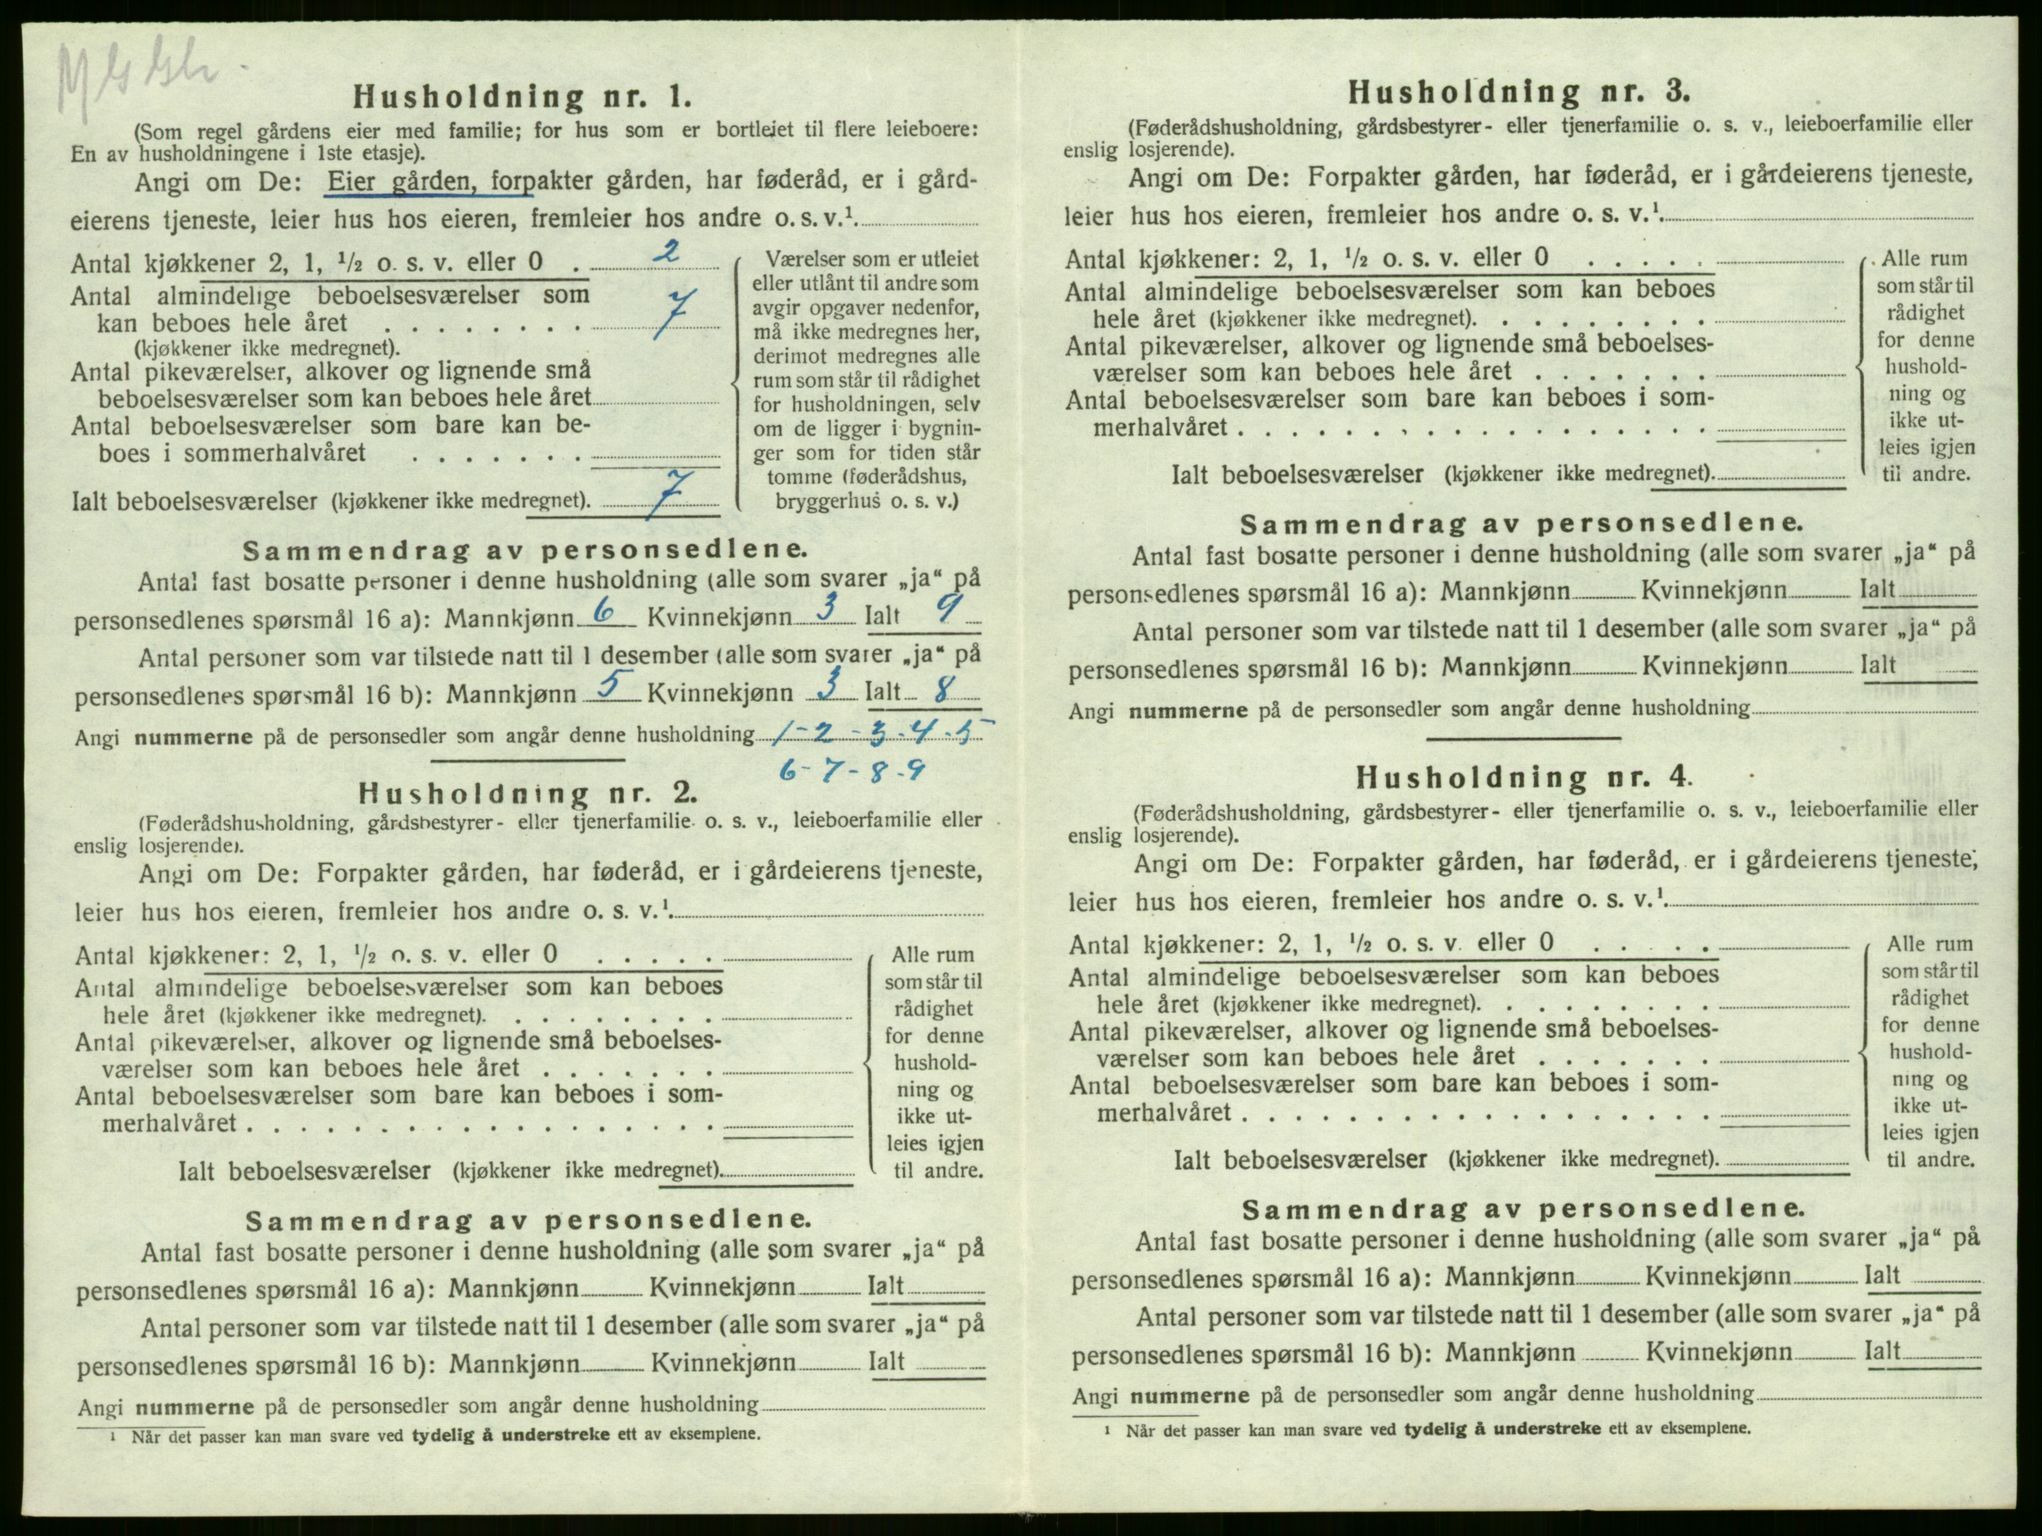 Husholdning nr. 1.
(Som regel gårdens eier med familie; for hus som er bortleiet til flere leieboere:
En av husholdningene i 1ste etasje).
Angi om De: Eier gården, forpakter gården, har føderåd, er i gård-
eierens tjeneste, leier hus hos eieren, fremleier hos andre o. s. v.¹.
Antal kjøkkener 2, 1, ½ o. s. v. eller 0 . 2
Antal almindelige beboelsesværelser som
kan beboes hele året . . . . . . . . 7
(kjøkkener ikke medregnet).
Antal pikeværelser, alkover og lignende små
beboelsesværelser som kan beboes hele året
Antal beboelsesværelser som bare kan be-
boes i sommerhalvåret . . . . . . .
Ialt beboelsesværelser (kjøkkener ikke medregnet). 7
Værelser som er utleiet
eller utlånt til andre som
avgir opgaver nedenfor,
må ikke medregnes her,
derimot medregnes alle
rum som står til rådighet
for husholdningen, selv
om de ligger i bygnin-
ger som for tiden står
tomme (føderådshus,
bryggerhus o. s. v.)
Sammendrag av personsedlene.
Antal fast bosatte personer i denne husholdning (alle som svarer „ja“ på
personsedlenes spørsmål 16 a): Mannkjønn 6 Kvinnekjønn 3 Ialt 9
Antal personer som var tilstede natt til 1 desember (alle som svarer „ja“ på
personsedlenes spørsmål 16 b): Mannkjønn 5 Kvinnekjønn 3 Ialt 8
Angi nummerne på de personsedler som angår denne husholdning 1-2-3-4-5
6-7-8-9
Husholdning nr. 2.
(Føderådshusholdning, gårdsbestyrer- eller tjenerfamilie o. s. v., leieboerfamilie eller
enslig losjerende).
Angi om De: Forpakter gården, har føderåd, er i gårdeierens tjeneste,
leier hus hos eieren, fremleier hos andre o. s. v.¹.
Antal kjøkkener: 2, 1, ½ o. s. v. eller 0 . . . . .
Antal almindelige beboelsesværelser som kan beboes
hele året (kjøkkener ikke medregnet). . . . . . . . .
Antal pikeværelser, alkover og lignende små beboelses-
værelser som kan beboes hele året . . . . . . .
Antal beboelsesværelser som bare kan beboes i som-
merhalvåret . . . . . . . . . . . . . . . . . .
Ialt beboelsesværelser (kjøkkener ikke medregnet).
Alle rum
som står til
rådighet
for denne
hushold-
ning og
ikke ut-
leies igjen
til andre.
Sammendrag av personsedlene.
Antal fast bosatte personer i denne husholdning (alle som svarer „ja“ på
personsedlenes spørsmål 16 a): Mannkjønn Kvinnekjønn Ialt
Antal personer som var tilstede natt til 1 desember (alle som svarer „ja“ på
personsedlenes spørsmål 16 b): Mannkjønn Kvinnekjønn Ialt
Angi nummerne på de personsedler som angår denne husholdning
¹ Når det passer kan man svare ved tydelig å understreke ett av eksemplene.
Husholdning nr. 3.
(Føderådshusholdning, gårdsbestyrer- eller tjenerfamilie o. s. v., leieboerfamilie eller
enslig losjerende).
Angi om De: Forpakter gården, har føderåd, er i gårdeierens tjeneste,
leier hus hos eieren, fremleier hos andre o. s. v.¹.
Antal kjøkkener: 2, 1, ½ o. s. v. eller 0 . . . . .
Antal almindelige beboelsesværelser som kan beboes
hele året (kjøkkener ikke medregnet). . . . . . . . .
Antal pikeværelser, alkover og lignende små beboelses-
værelser som kan beboes hele året . . . . . . .
Antal beboelsesværelser som bare kan beboes i som-
merhalvåret . . . . . . . . . . . . . . . . . .
Ialt beboelsesværelser (kjøkkener ikke medregnet).
Alle rum
som står til
rådighet
for denne
hushold-
ning og
ikke ut-
leies igjen
til andre.
Sammendrag av personsedlene.
Antal fast bosatte personer i denne husholdning (alle som svarer „ja“ på
personsedlenes spørsmål 16 a): Mannkjønn Kvinnekjønn Ialt
Antal personer som var tilstede natt til 1 desember (alle som svarer „ja“ på
personsedlenes spørsmål 16 b): Mannkjønn Kvinnekjønn Ialt
Angi nummerne på de personsedler som angår denne husholdning
Husholdning nr. 4.
(Føderådshusholdning, gårdsbestyrer- eller tjenerfamilie o. s. v., leieboerfamilie eller
enslig losjerende).
Angi om De: Forpakter gården, har føderåd, er i gårdeierens tjeneste,
leier hus hos eieren, fremleier hos andre o. s. v.¹.
Antal kjøkkener: 2, 1, ½ o. s. v. eller 0 . . . . .
Antal almindelige beboelsesværelser som kan beboes
hele året (kjøkkener ikke medregnet). . . . . . . . .
Antal pikeværelser, alkover og lignende små beboelses-
værelser som kan beboes hele året . . . . . . .
Antal beboelsesværelser som bare kan beboes i som-
merhalvåret . . . . . . . . . . . . . . . . . .
Ialt beboelsesværelser (kjøkkener ikke medregnet).
Alle rum
som står til
rådighet
for denne
hushold-
ning og
ikke ut-
leies igjen
til andre.
Sammendrag av personsedlene.
Antal fast bosatte personer i denne husholdning (alle som svarer „ja“ på
personsedlenes spørsmål 16 a): Mannkjønn Kvinnekjønn Ialt
Antal personer som var tilstede natt til 1 desember (alle som svarer „ja“ på
personsedlenes spørsmål 16 b): Mannkjønn Kvinnekjønn Ialt
Angi nummerne på de personsedler som angår denne husholdning
¹ Når det passer kan man svare ved tydelig å understreke ett av eksemplene.